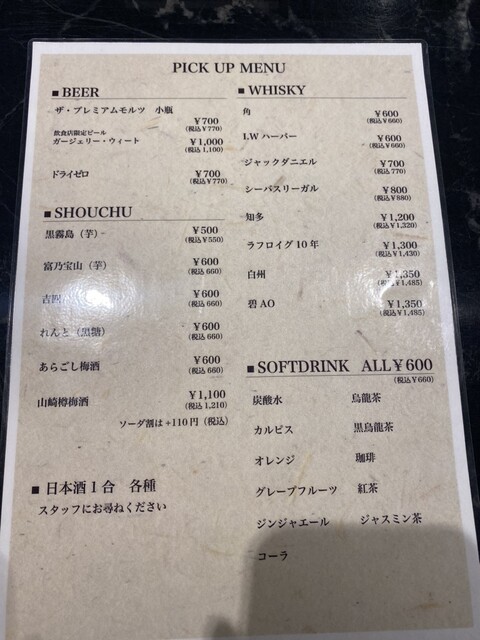 PICK UP MENU
■ BEER
ザ・プレミアムモルツ 小瓶
¥700
(税込¥770)
飲食店限定ビール
ガージェリー・ウィート
¥1,000
(税込 1,100)
ドライゼロ
¥700
(税込¥770)
■ SHOUCHU
黒霧島（芋）
¥500
(税込¥550)
富乃宝山（芋）
¥600
(税込 660)
吉四
¥600
(税込 660)
れんと（黒糖）
¥600
(税込 660)
あらごし梅酒
¥600
(税込 660)
山崎樽梅酒
¥1,100
(税込 1,210)
ソーダ割は+110円（税込）
■ 日本酒１合 各種
スタッフにお尋ねください
■ WHISKY
角
¥600
(税込¥660)
I.Wハーパー
¥600
(税込¥660)
ジャックダニエル
¥700
(税込 770)
シーバスリーガル
¥800
(税込¥880)
知多
¥1,200
(税込¥1,320)
ラフロイグ10年
¥1,300
(税込¥1,430)
白州
¥1,350
(税込¥1,485)
碧AO
¥1,350
(税込¥1,485)
■ SOFTDRINK ALL¥600
(税込¥660)
炭酸水 烏龍茶
カルピス 黒烏龍茶
オレンジ 珈琲
グレープフルーツ 紅茶
ジンジャエール ジャスミン茶
コーラ